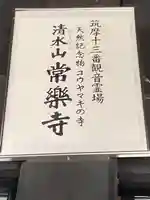 筑摩十三番観音霊場
天然記念物コウヤマキの寺
清水山 常樂寺